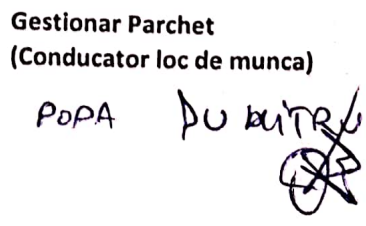 Gestionar Parchet
(Conducator loc de munca)
POPA DUMITRU